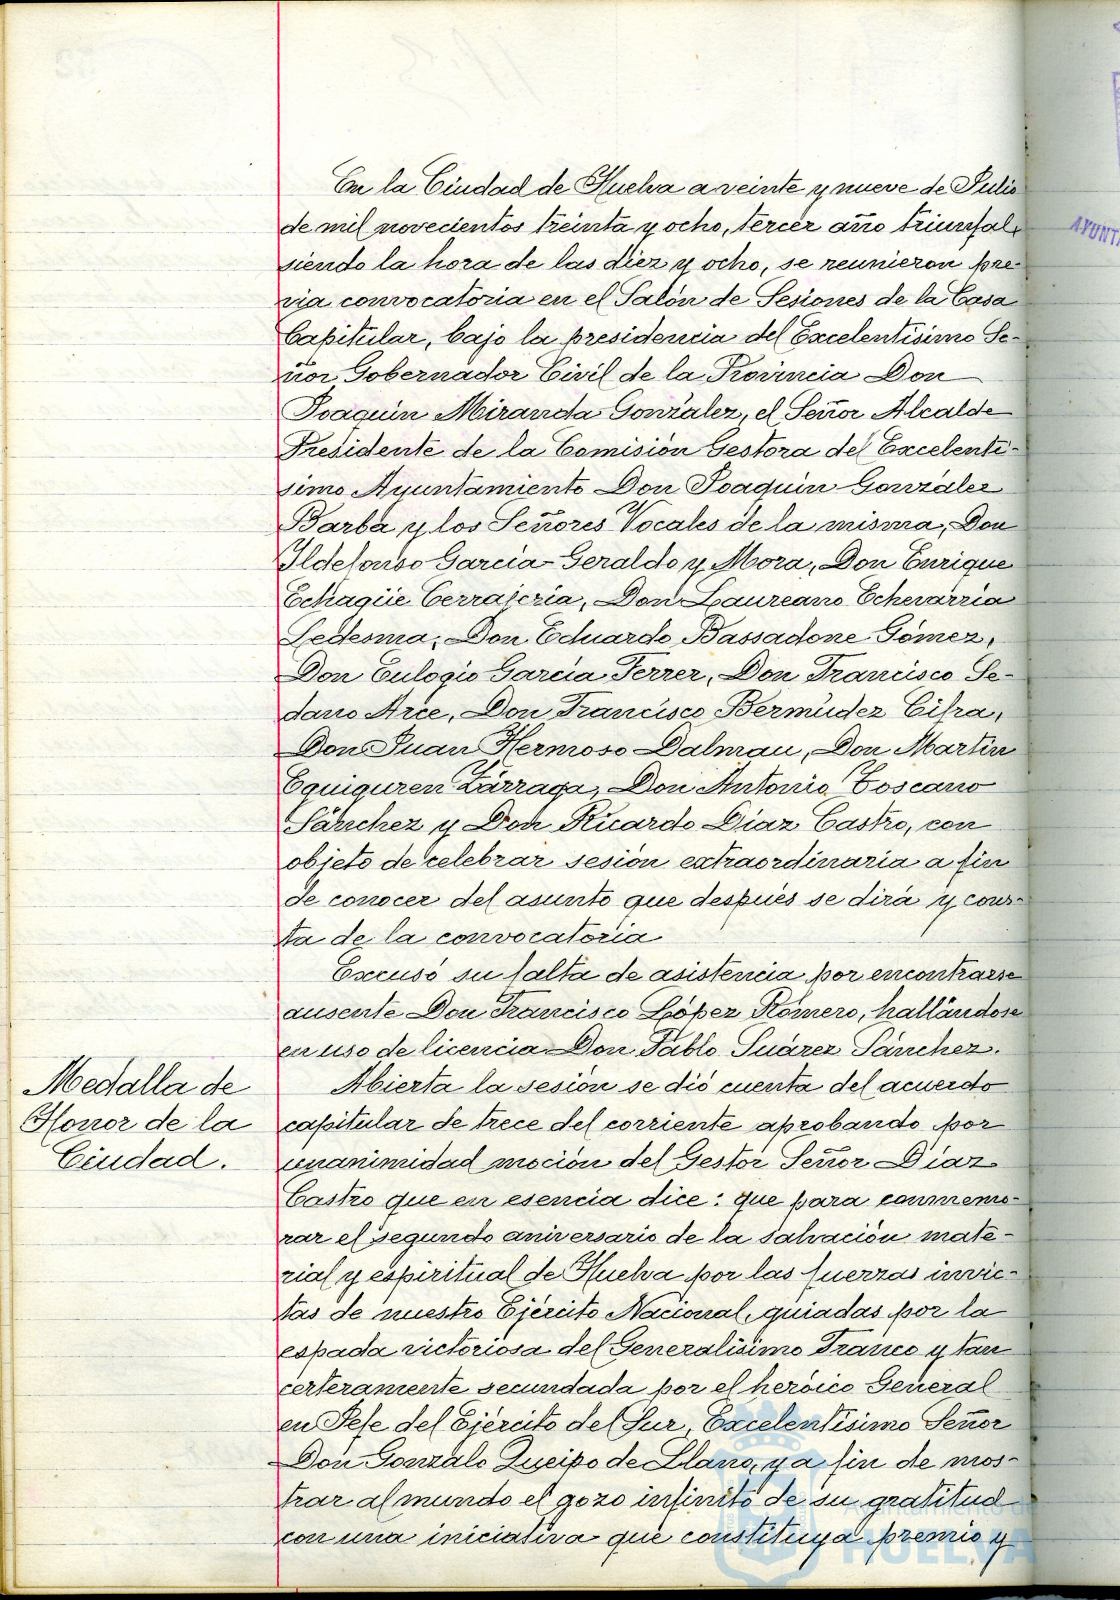 En la Ciudad de Huelva a veinte y nueve de Julio
de mil novecientos treinta y ocho, tercer año triunfal,
siendo la hora de las diez y ocho, se reunieron pre-
via convocatoria en el Salón de Sesiones de la Casa
Capitular, bajo la presidencia del Excelentísimo Se-
ñor Gobernador Civil de la Provincia Don
Joaquín Miranda González, el Señor Alcalde
Presidente de la Comisión Gestora del Excelentí-
simo Ayuntamiento Don Joaquín González
Barba y los Señores Vocales de la misma, Don
Ildefonso García-Geraldo y Mora, Don Enrique
Echagüe Cerrajería, Don Laureano Echevarría
Ledesma, Don Eduardo Bassadone Gómez,
Don Eulogio García Ferrer, Don Francisco Se-
dano Arce, Don Francisco Bermúdez Cifra,
Don Juan Hermoso Dalmau, Don Martín
Eguiguren Zárraga, Don Antonio Toscano
Sánchez y Don Ricardo Díaz Castro, con
objeto de celebrar sesión extraordinaria a fin
de conocer del asunto que después se dirá y cons-
ta de la convocatoria
Excusó su falta de asistencia por encontrarse
ausente Don Francisco López Romero, hallándose
en uso de licencia Don Pablo Suárez Sánchez.
Medalla de
Honor de la
Ciudad.
Abierta la sesión se dió cuenta del acuerdo
capitular de trece del corriente aprobando por
unanimidad moción del Gestor Señor Díaz
Castro que en esencia dice: que para conmemo-
rar el segundo aniversario de la salvación mate-
rial y espiritual de Huelva por las fuerzas invic-
tas de nuestro Ejército Nacional, guiadas por la
espada victoriosa del Generalísimo Franco y tan
certeramente secundada por el heróico General
en Jefe del Ejército del Sur, Excelentísimo Señor
Don Gonzalo Queipo de Llano, y a fin de mos-
trar al mundo el gozo infinito de su gratitud
con una iniciativa que constituya premio y
Ayuntamiento de
HUELVA
AYUNTA